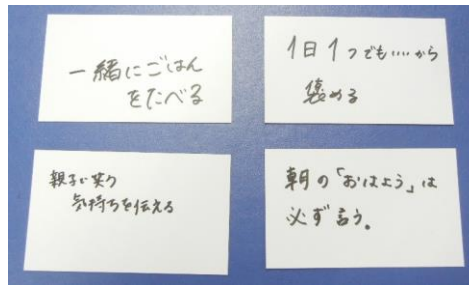 一緒にごはん
をたべる
1日1つでも‥‥から
褒める
気持ちを伝える
朝の「おはよう」は
必ず言う。